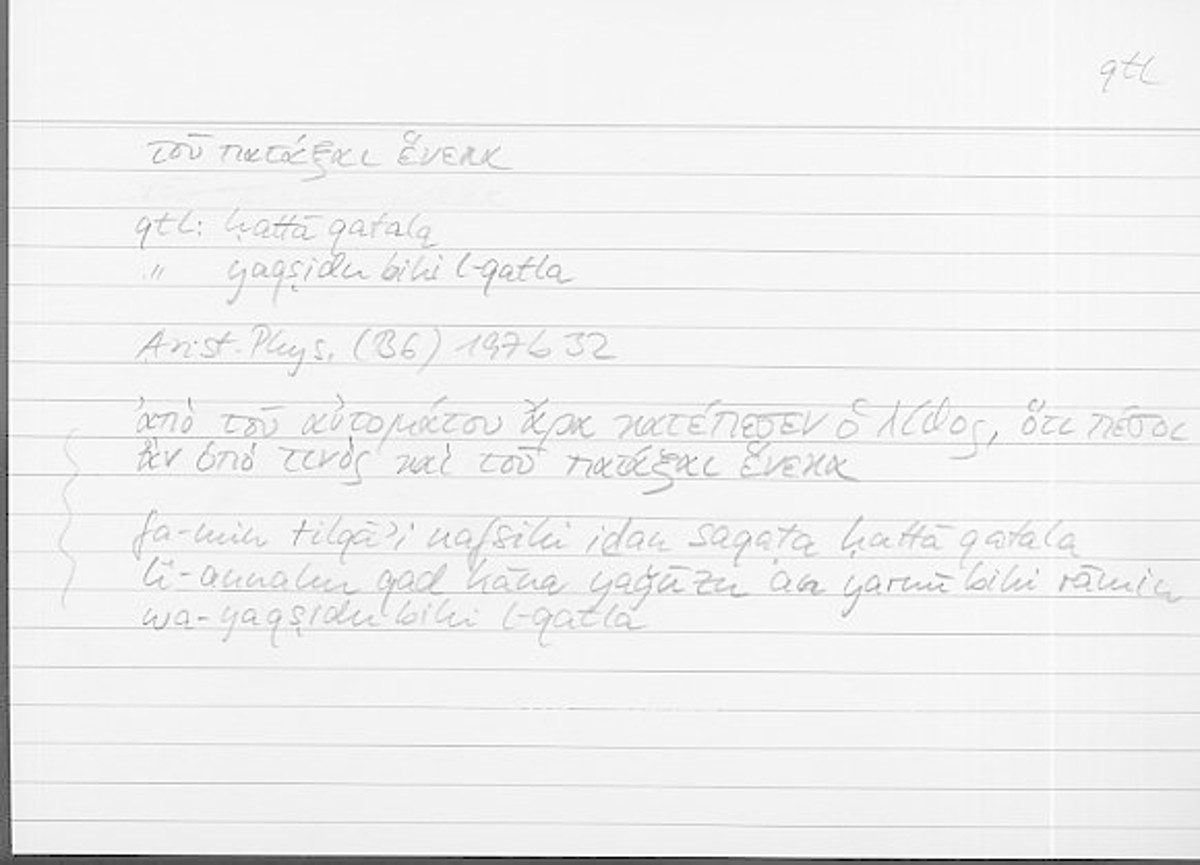 qtl
τοῦ πατάξαι ἕνεκα
qtl: ḥattā qatala
" yaqṣidu bihi l-qatla
Arist. Phys. (B6) 197b 32
ἀπὸ τοῦ αὐτομάτου ἄρα κατέπεσεν ὁ λίθος, ὅτι πέσοι
ἂν ὑπό τινος καὶ τοῦ πατάξαι ἕνεκα
fa-min tilqāʾi nafsihi iḏan saqaṭa ḥattā qatala
li-annahu qad kāna yaǧūzu an yarmī bihi rāmin
wa-yaqṣidu bihi l-qatla